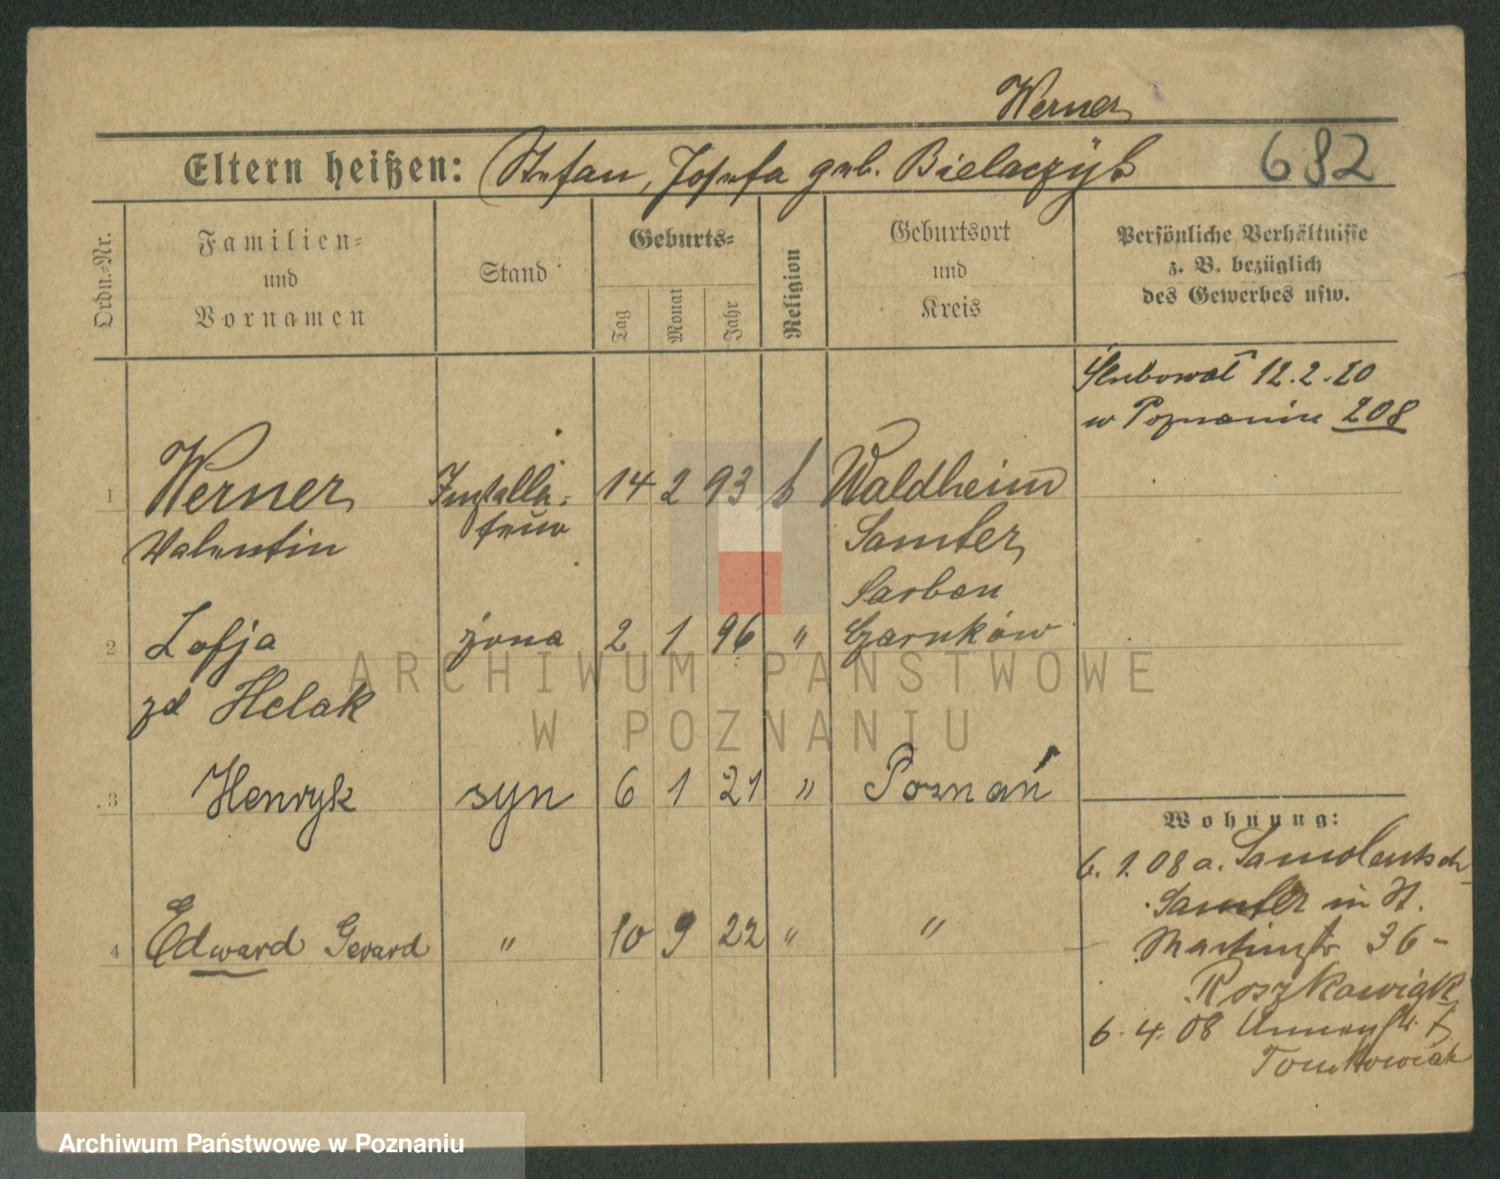 Werner
Eltern heißen: Stefan, Josefa geb. Bielaczyk 682
Ordn.-Nr.
Familien-
und
Vornamen
Stand
Geburts-
Tag
Monat
Jahr
Religion
Geburtsort
und
Kreis
Persönliche Verhältnisse
z. B. bezüglich
des Gewerbes usw.
Ślubował 12.2.20
w Poznaniu 208
1 Werner Installa- 14 2 93 k Waldheim
Valentin teur Samter
Sarben
2 Zofja żona 2 1 96 " Czarnków
zd Helak
3 Henryk syn 6 1 21 " Poznań
4 Edward Gerard " 10 9 22 " "
Wohnung:
6. 1. 08 a. Samolentsch
Samter in St.
Martinstr 36 -
Roszkowiak
6. 4. 08
Tomkowiak
ARCHIWUM PAŃSTWOWE
W POZNANIU
Archiwum Państwowe w Poznaniu